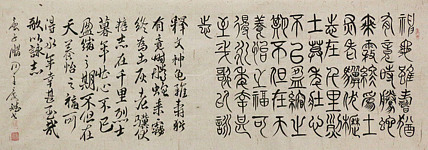 神龜雖壽猶
有竟時騰蛇
乘霧終為土
灰老驥伏櫪
志在千里烈
士暮年壯心
不已盈縮之
期不但在天
養怡之福可
得永年幸甚
至哉歌以詠
志
釋文神龜雖壽猶
有竟時騰蛇乘霧
終為土灰老驥伏
櫪志在千里烈士
暮年壯心不已
盈縮之期不但在
天養怡之福可
得永年幸甚至哉
歌以詠志
庚子